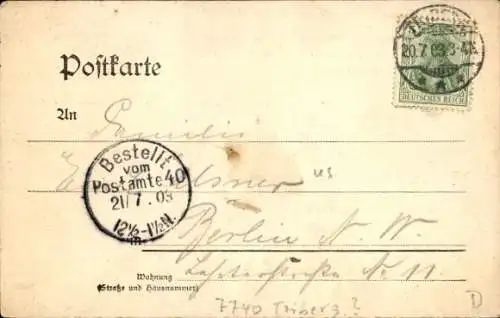 Postkarte
20.7.03.3-4N.
DEUTSCHES REICH
An Familie
Bestellt
vom
Postamte 40
21/7.03
12½-1½N.
Berlin N. W.
Wohnung
(Straße und Hausnummer)
No 11.
7740 Triberg?
D